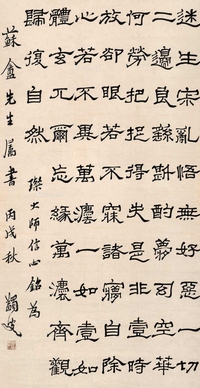 迷生宋亂悟無好惡一切
二邊良繇斟酌夢幻空華
何勞把捉得失是非一時
放卻眼若不寐諸㝱自除
心若不異萬灋一如壹如
體玄兀爾忘緣萬灋齊觀
歸復自然
璨大師信心銘為
蘇盦先生屬書 丙戌秋 蠲叟